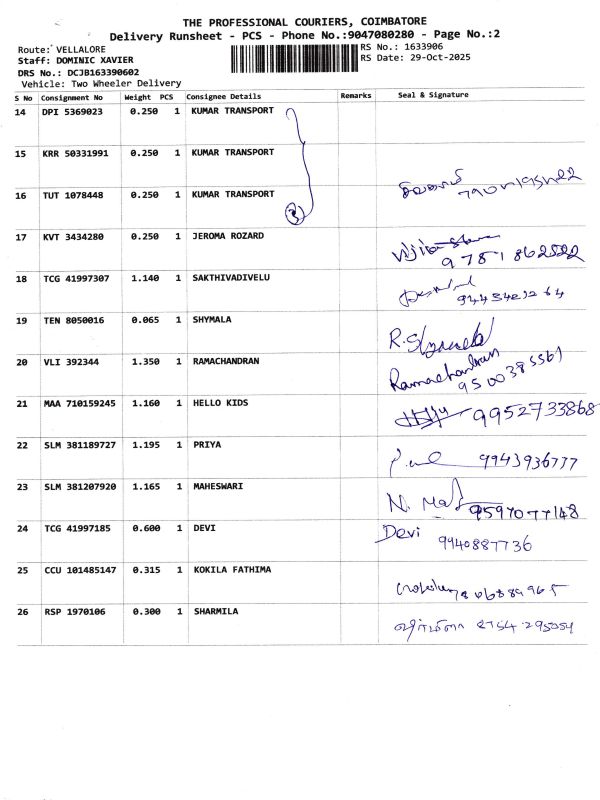 THE PROFESSIONAL COURIERS, COIMBATORE
Delivery Runsheet - PCS - Phone No.:9047080280 - Page No.:2
Route: VELLALORE
RS No.: 1633906
Staff: DOMINIC XAVIER
RS Date: 29-Oct-2025
DRS No.: DCJB163390602
Vehicle: Two Wheeler Delivery
S No Consignment No Weight PCS Consignee Details Remarks Seal & Signature
14 DPI 5369023 0.250 1 KUMAR TRANSPORT
15 KRR 50331991 0.250 1 KUMAR TRANSPORT
16 TUT 1078448 0.250 1 KUMAR TRANSPORT
3
17 KVT 3434280 0.250 1 JEROMA ROZARD
9781862522
18 TCG 41997307 1.140 1 SAKTHIVADIVELU
19 TEN 8050016 0.065 1 SHYMALA
20 VLI 392344 1.350 1 RAMACHANDRAN Ramachandran
9500385561
21 MAA 710159245 1.160 1 HELLO KIDS 9952733868
22 SLM 381189727 1.195 1 PRIYA 9943936777
23 SLM 381207920 1.165 1 MAHESWARI 9597077148
24 TCG 41997185 0.600 1 DEVI Devi
9940887736
25 CCU 101485147 0.315 1 KOKILA FATHIMA
26 RSP 1970106 0.300 1 SHARMILA ஷர்மிளா 8754295054